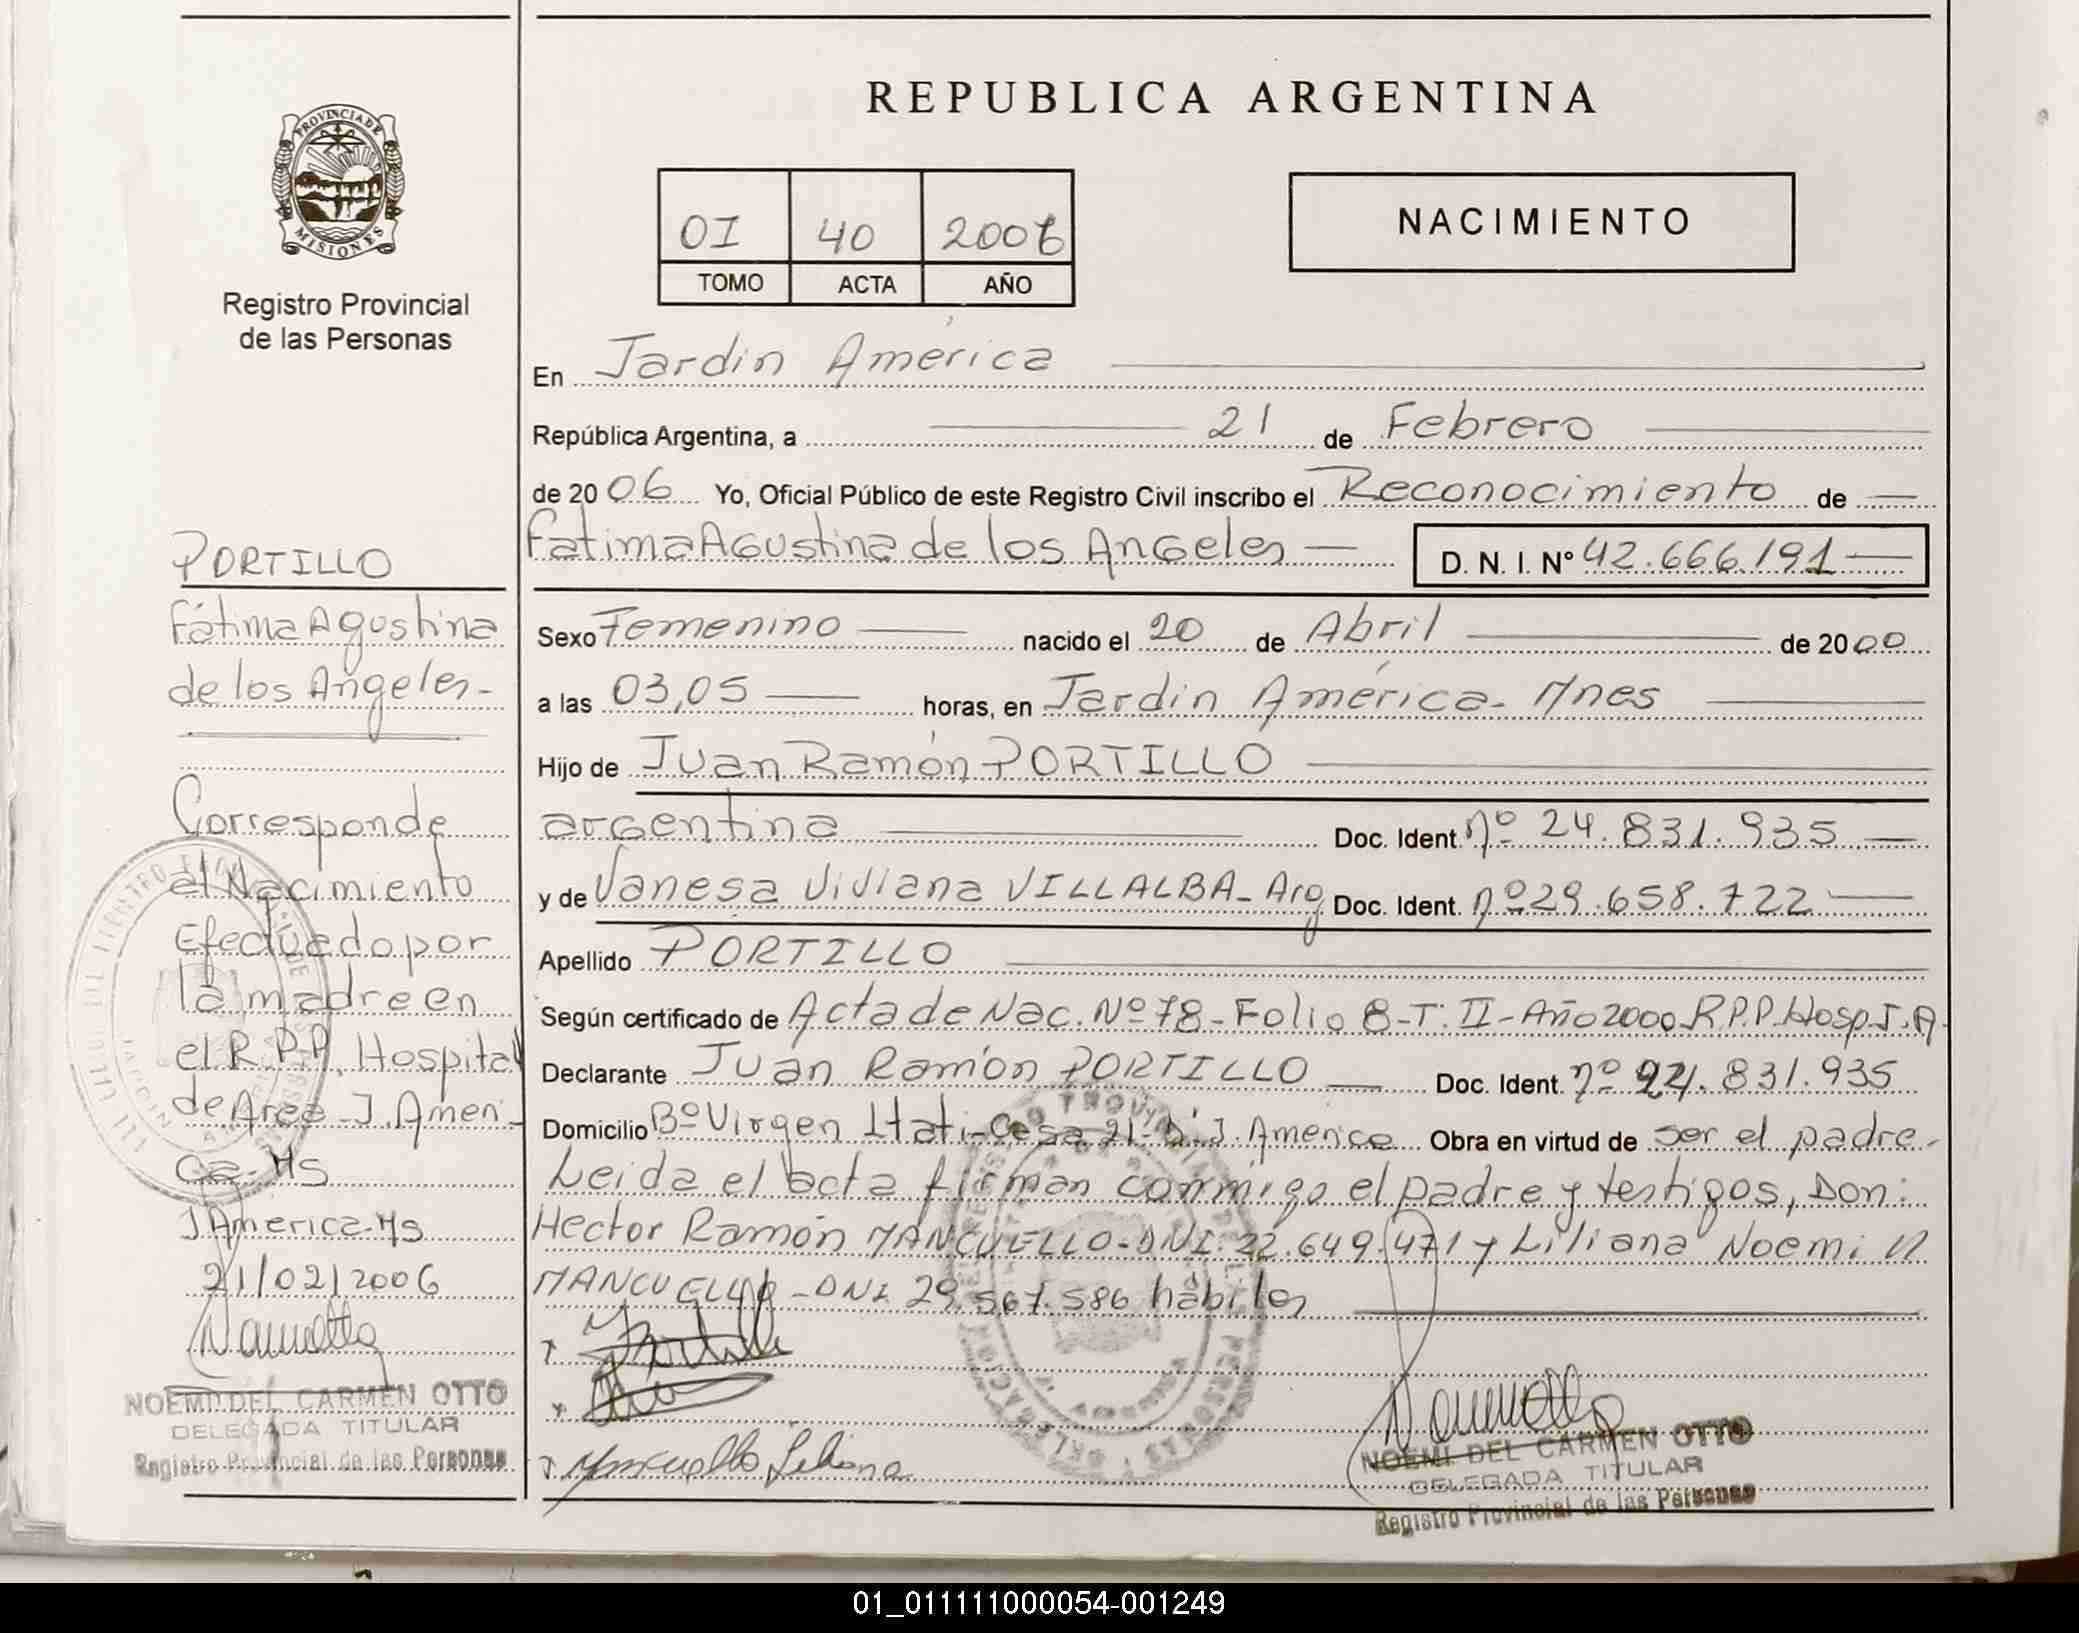 REPUBLICA ARGENTINA
PROVINCIA DE
MISIONES
Registro Provincial
de las Personas
OI 40 2006
TOMO ACTA AÑO
NACIMIENTO
PORTILLO
Fátima Agustina
de los Angeles-
Corresponde
al Nacimiento
Efectuado por
la madre en
el R.P.P. Hospital
de Area J. Ameri-
ca-Ms
J America-Ms
21/02/2006
NOEMI DEL CARMEN OTTO
DELEGADA TITULAR
Registro Provincial de las Personas
En Jardin América
República Argentina, a 21 de Febrero
de 20 06 Yo, Oficial Público de este Registro Civil inscribo el Reconocimiento de
Fatima Agustina de los Angeles D. N. I. Nº 42.666.191
Sexo Femenino nacido el 20 de Abril de 2000
a las 03,05 horas, en Jardin América- Mnes
Hijo de Juan Ramón PORTILLO
argentina Doc. Ident. nº 24.831.935
y de Vanesa Viviana VILLALBA- Arg Doc. Ident. nº 29.658.722
Apellido PORTILLO
Según certificado de Acta de Nac. Nº 78- Folio 8-T. II- Año 2000 R.P.P. Hosp. J.A.
Declarante Juan Ramón PORTILLO Doc. Ident. nº 24.831.935
Domicilio Bº Virgen Itati- Casa 21- J. America Obra en virtud de ser el padre-
Leida el acta firman conmigo el padre y testigos, Don:
Hector Ramón MANCUELLO- DNI. 22.649.471 y Liliana Noemi
MANCUELLO - DNI 29.567.586 hábiles
Mancuello Liliana
NOEMI DEL CARMEN OTTO
DELEGADA TITULAR
Registro Provincial de las Personas
01_011111000054-001249